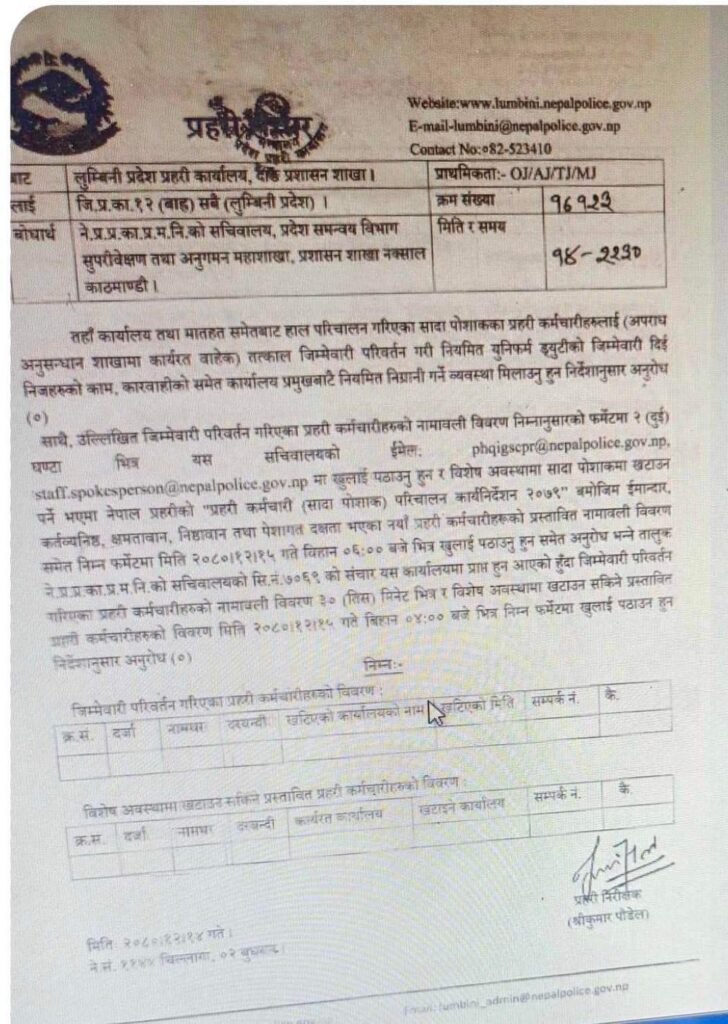 Website:www.lumbini.nepalpolice.gov.np
E-mail-lumbini@nepalpolice.gov.np
Contact No:०82-523410
प्रहरी
बाट लुम्बिनी प्रदेश प्रहरी कार्यालय, दाङ प्रशासन शाखा । प्राथमिकता:- OJ/AJ/TJ/MJ
लाई जि.प्र.का.१२ (बाह्र) सबै (लुम्बिनी प्रदेश) । क्रम संख्या १६१२३
बोधार्थ ने.प्र.प्र.का.प्र.म.नि.को सचिवालय, प्रदेश समन्वय विभाग मिति र समय
सुपरीवेक्षण तथा अनुगमन महाशाखा, प्रशासन शाखा नक्साल १४-२२३०
काठमाण्डौ ।
तहाँ कार्यालय तथा मातहत समेतबाट हाल परिचालन गरिएका सादा पोशाकका प्रहरी कर्मचारीहरुलाई (अपराध
अनुसन्धान शाखामा कार्यरत वाहेक) तत्काल जिम्मेवारी परिवर्तन गरी नियमित युनिफर्म ड्युटीको जिम्मेवारी दिई
निजहरुको काम, कारवाहीको समेत कार्यालय प्रमुखबाटै नियमित निग्रानी गर्ने व्यवस्था मिलाउनु हुन निर्देशानुसार अनुरोध
(०)
साथै, उल्लिखित जिम्मेवारी परिवर्तन गरिएका प्रहरी कर्मचारीहरुको नामावली विवरण निम्नानुसारको फर्मेटमा २ (दुई)
घण्टा भित्र यस सचिवालयको ईमेल: phqigscpr@nepalpolice.gov.np,
staff.spokesperson@nepalpolice.gov.np मा खुलाई पठाउनु हुन र विशेष अवस्थामा सादा पोशाकमा खटाउन
पर्ने भएमा नेपाल प्रहरीको "प्रहरी कर्मचारी (सादा पोशाक) परिचालन कार्यनिर्देशन २०७९" बमोजिम ईमान्दार,
कर्तव्यनिष्ठ, क्षमतावान, निष्ठावान तथा पेशागत दक्षता भएका नयाँ प्रहरी कर्मचारीहरुको प्रस्तावित नामावली विवरण
समेत निम्न फर्मेटमा मिति २०८०।१२।१५ गते विहान ०६:०० बजे भित्र खुलाई पठाउनु हुन समेत अनुरोध भन्ने तालुक
ने.प्र.प्र.का.प्र.म.नि.को सचिवालयको सि.नं.७०६९ को संचार यस कार्यालयमा प्राप्त हुन आएको हुँदा जिम्मेवारी परिवर्तन
गरिएका प्रहरी कर्मचारीहरुको नामावली विवरण ३० (तिस) मिनेट भित्र र विशेष अवस्थामा खटाउन सकिने प्रस्तावित
प्रहरी कर्मचारीहरुको विवरण मिति २०८०।१२।१५ गते बिहान ०४:०० बजे भित्र निम्न फर्मेटमा खुलाई पठाउनु हुन
निर्देशानुसार अनुरोध (०)
निम्न:-
जिम्मेवारी परिवर्तन गरिएका प्रहरी कर्मचारीहरुको विवरण :
क्र.सं. दर्जा नामथर दरवन्दी खटिएको कार्यालयको नाम खटिएको मिति सम्पर्क नं. कै.
विशेष अवस्थामा खटाउन सकिने प्रस्तावित प्रहरी कर्मचारीहरुको विवरण :
क्र.स. दर्जा नामथर दरवन्दी कार्यरत कार्यालय खटाइने कार्यालय सम्पर्क नं. कै.
प्रहरी निरीक्षक
(श्रीकुमार पौडेल)
मिति: २०८०।१२।१४ गते ।
ने.सं. ११४४ चिल्लागा, ०२ बुधबार ।
Email: lumbini_admin@nepalpolice.gov.np